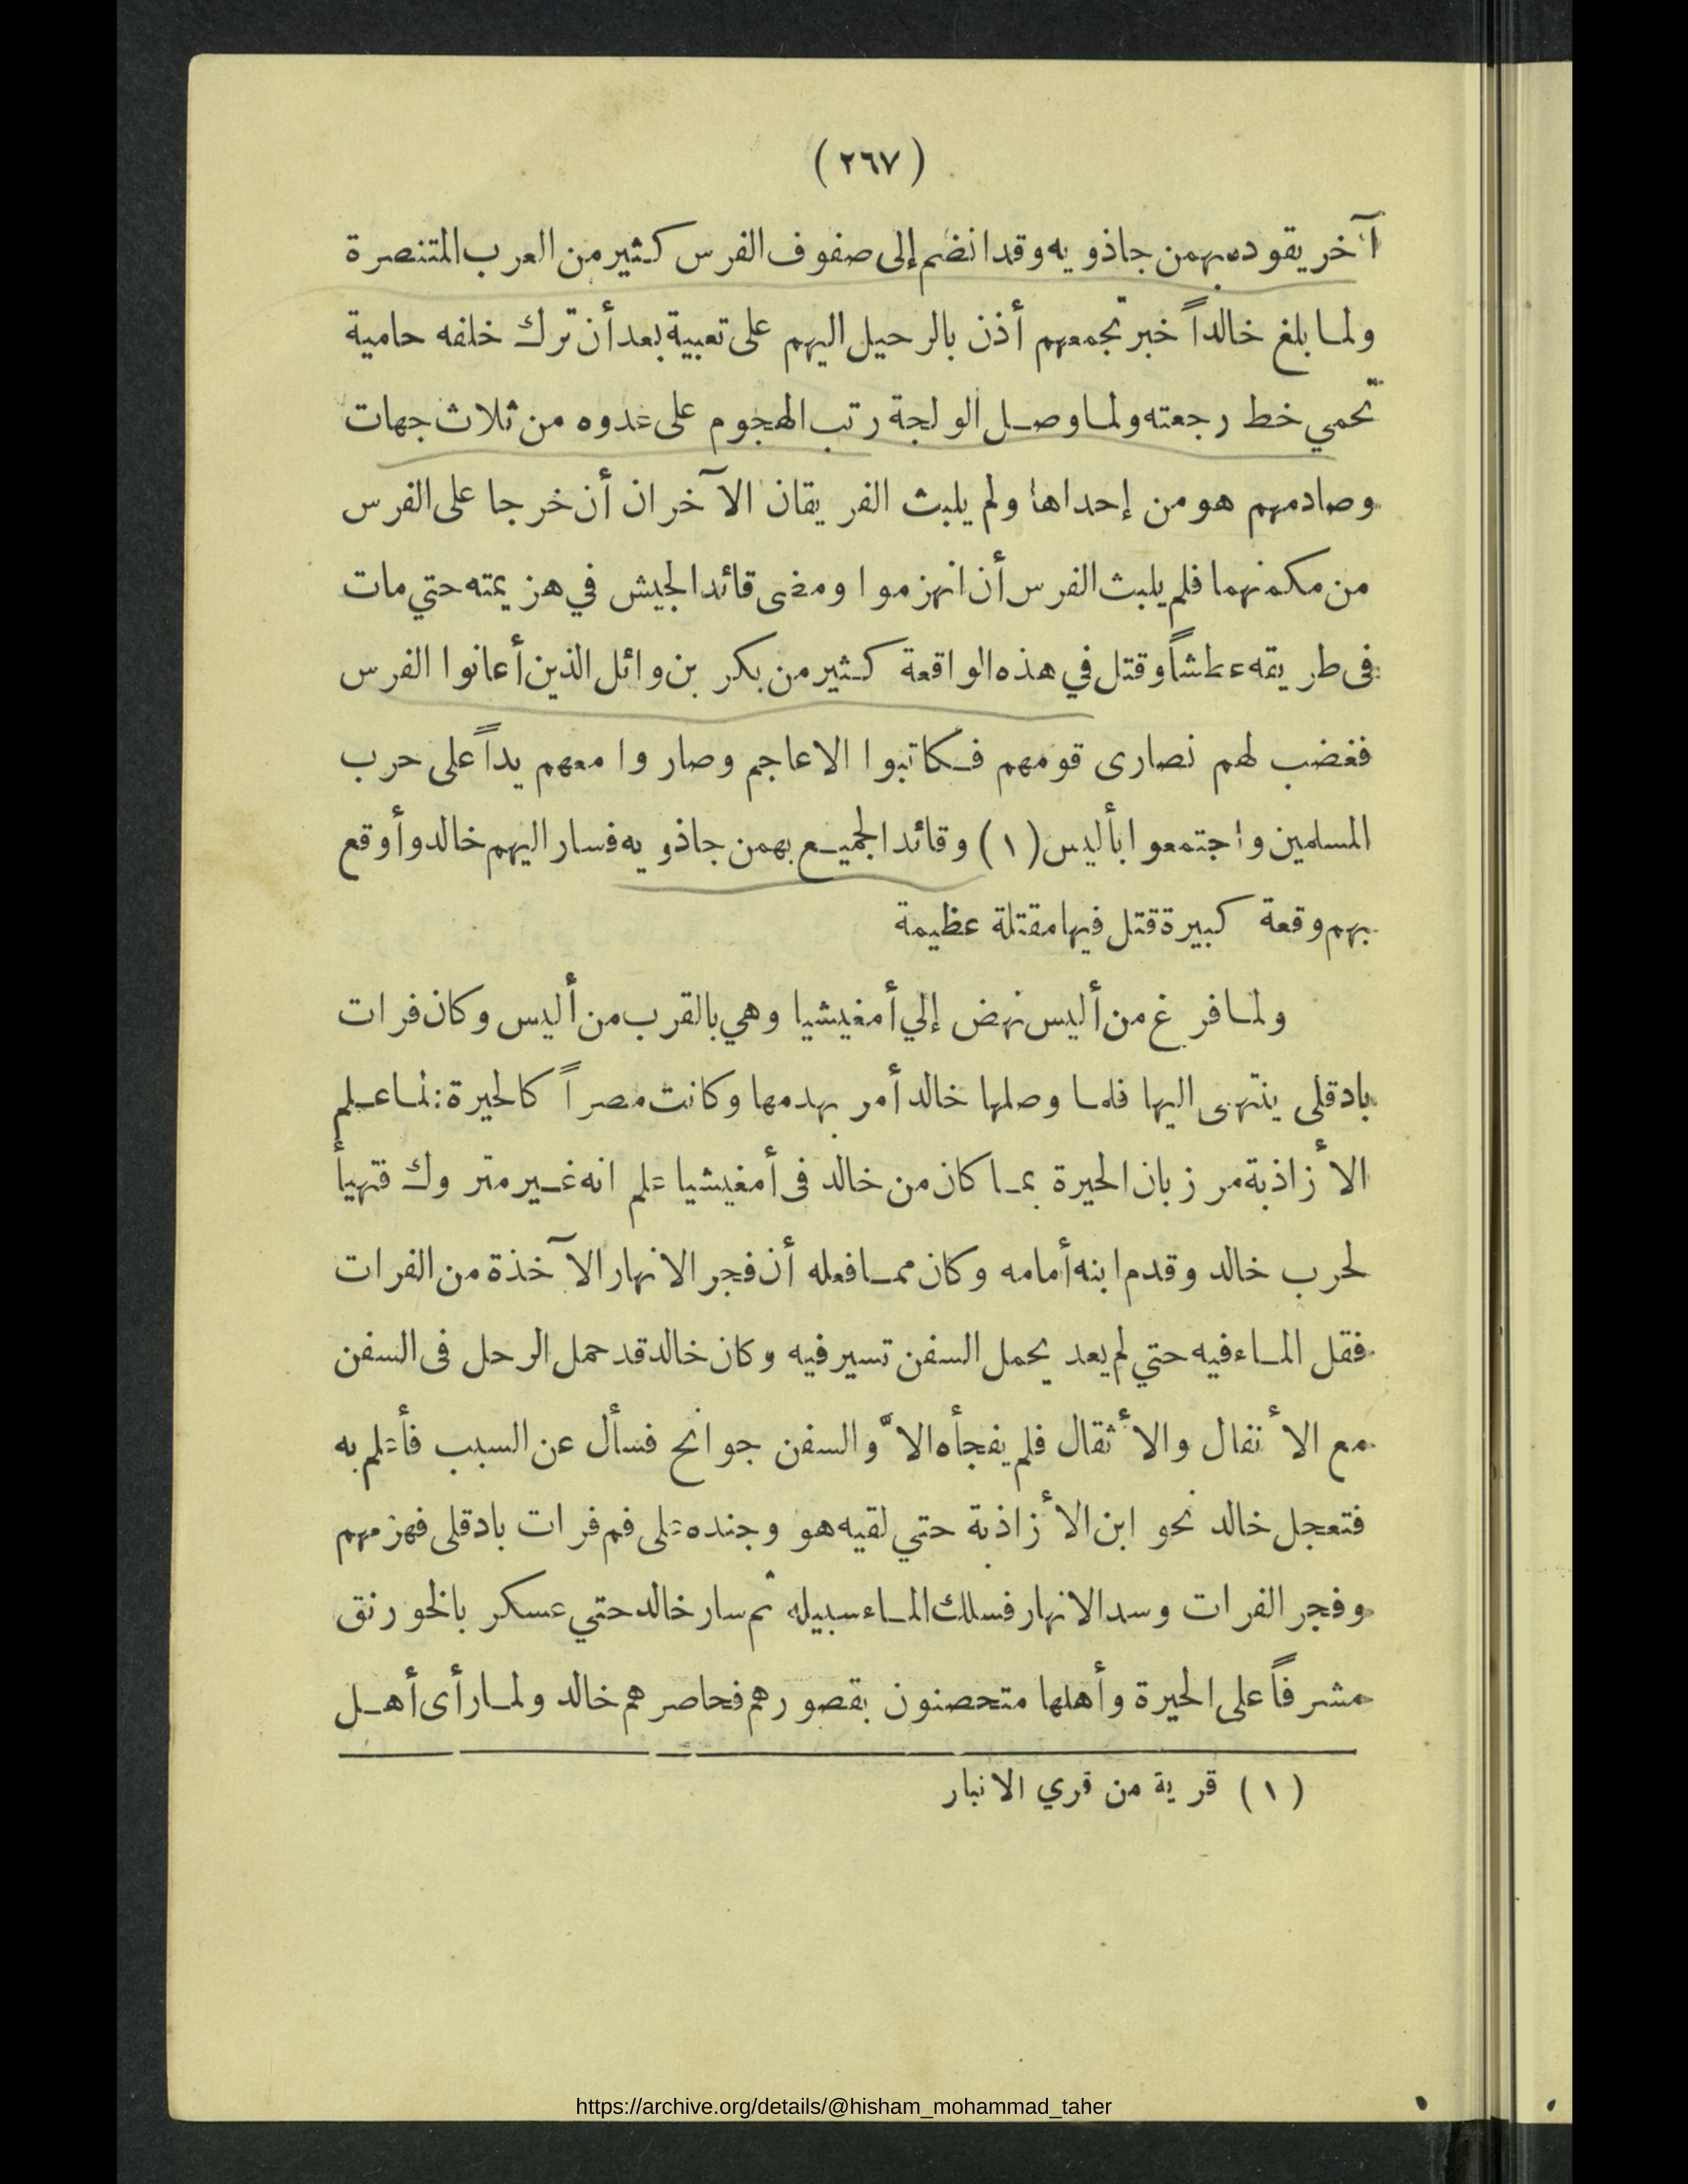 ( ٢٦٧ )
آخر يقوده بهمن جاذويه وقد انضم إلى صفوف الفرس كثير من العرب المتنصرة
ولما بلغ خالداً خبر تجمعهم أذن بالرحيل اليهم على تعبية بعد أن ترك خلفه حامية
تحمي خط رجعته ولما وصل الولجة رتب الهجوم على عدوه من ثلاث جهات
وصادمهم هو من إحداها ولم يلبث الفريقان الآخران أن خرجا على الفرس
من مكمنهما فلم يلبث الفرس أن انهزموا ومضى قائد الجيش في هزيمته حتي مات
فى طريقه عطشاً وقتل في هذه الواقعة كثير من بكر بن وائل الذين أعانوا الفرس
فغضب لهم نصارى قومهم فكاتبوا الاعاجم وصاروا معهم يداً على حرب
المسلمين واجتمعوا بأليس (١) وقائد الجميع بهمن جاذويه فسار اليهم خالد وأوقع
بهم وقعة كبيرة قتل فيها مقتلة عظيمة
ولما فرغ من أليس نهض إلي أمغيشيا وهي بالقرب من أليس وكان فرات
بادقلى ينتهى اليها فلما وصلها خالد أمر بهدمها وكانت مصراً كالحيرة: لما علم
الأزاذبة مرزبان الحيرة بما كان من خالد فى أمغيشيا علم انه غير متروك فتهيأ
لحرب خالد وقدم ابنه أمامه وكان مما فعله أن فجر الانهار الآخذة من الفرات
فقل الماء فيه حتي لم يعد يحمل السفن تسير فيه وكان خالد قد حمل الرحل فى السفن
مع الأنفال والأثقال فلم يفجأه الاّ والسفن جوانح فسأل عن السبب فأعلم به
فتعجل خالد نحو ابن الأزاذبة حتي لقيه هو وجنده على فم فرات بادقلى فهزمهم
وفجر الفرات وسد الانهار فسلك الماء سبيله ثم سار خالد حتي عسكر بالخورنق
مشرفاً على الحيرة وأهلها متحصنون بقصورهم فحاصرهم خالد ولما رأى أهل
(١) قرية من قري الانبار
https://archive.org/details/@hisham_mohammad_taher